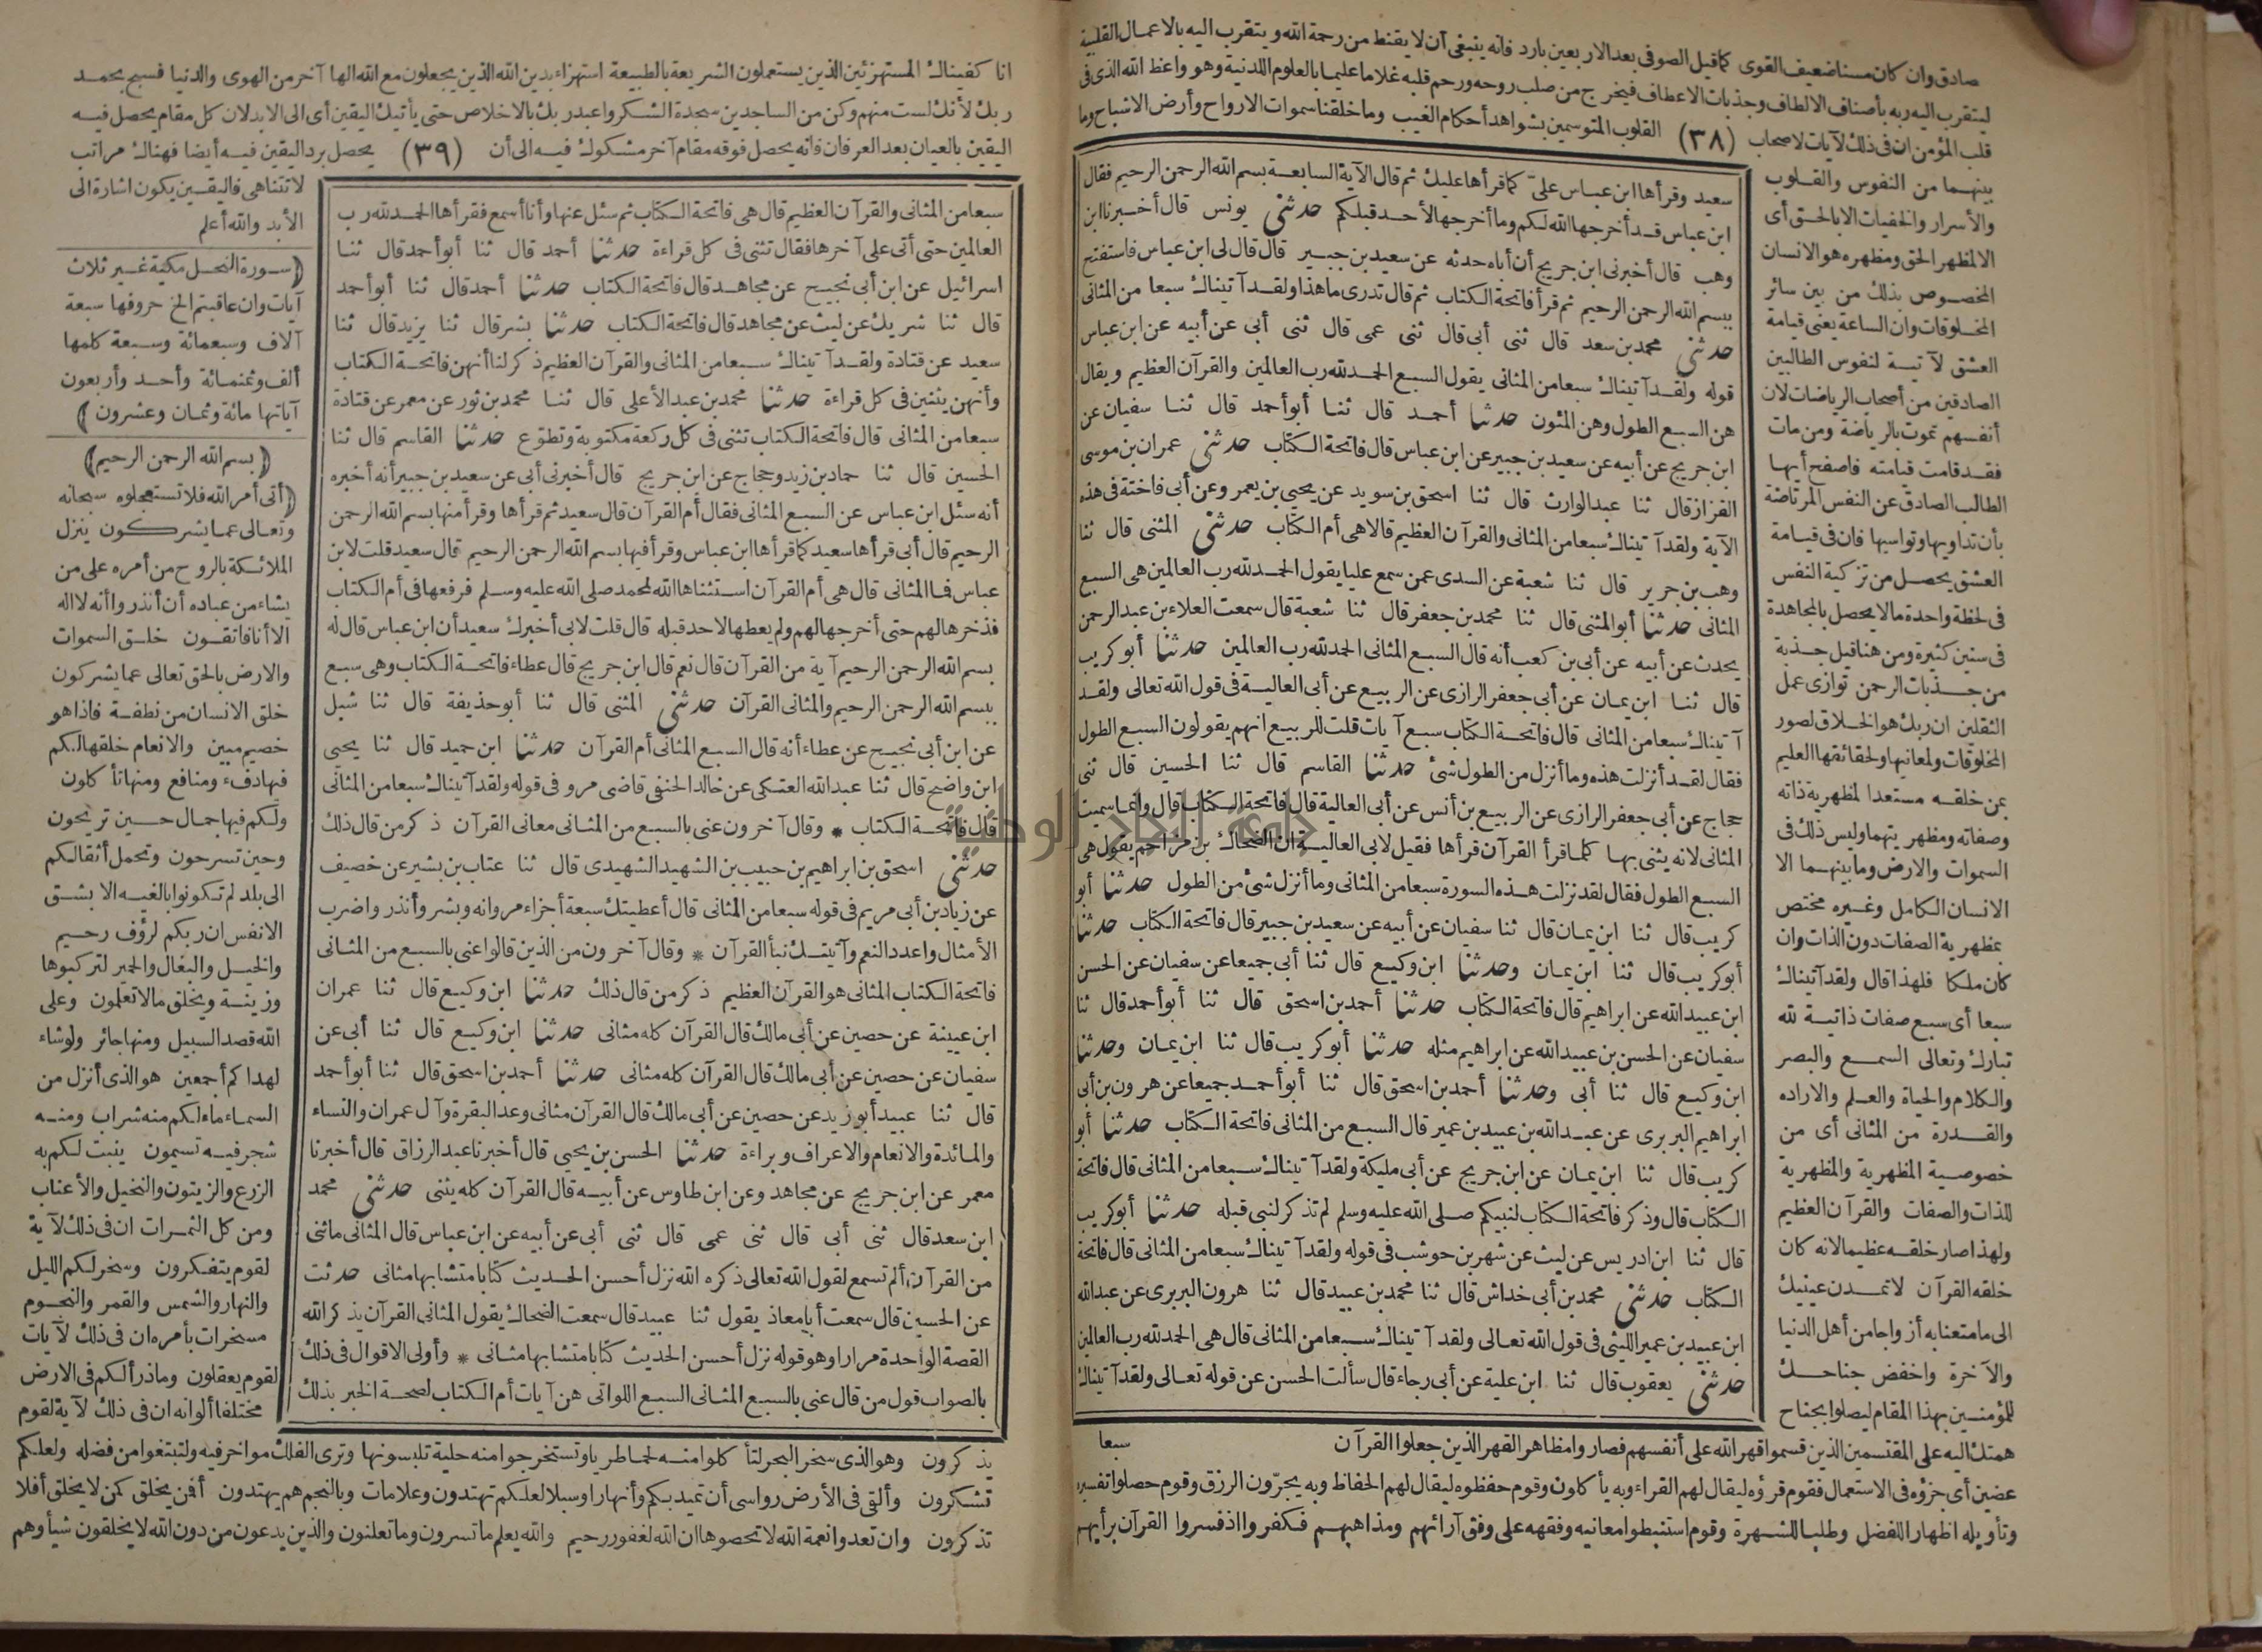 صادق وان كان مسنا ضعيف القوى كما قيل الصوفى بعد الاربعين بارد فانه ينبغى أن لا يقنط من رحمة الله ويتقرب اليه بالاعمال القلبية
ليتقرب اليه ربه بأصناف الالطاف وجذبات الاعطاف فيخرج من صلب روحه ورحم قلبه غلاما عليما بالعلوم اللدنية وهو واعظ الله الذى فى
قلب المؤمن ان فى ذلك لآيات لاصحاب (٣٨) القلوب المتوسمين بشواهد أحكام الغيب وما خلقنا سموات الارواح وأرض الاشباح وما
بينهما من النفوس والقلوب
والأسرار والخفيات الا بالحق أى
الا لمظهر الحق ومظهره هو الانسان
المخصوص بذلك من بين سائر
المخلوقات وان الساعة يعنى قيامة
العشق لآتية لنفوس الطالبين
الصادقين من أصحاب الرياضات لان
أنفسهم تموت بالرياضة ومن مات
فقد قامت قيامته فاصفح أيها
الطالب الصادق عن النفس المرتاضة
بأن تداويها وتواسيها فان فى قيامة
العشق يحصل من تزكية النفس
فى لحظة واحدة ما لا يحصل بالمجاهدة
فى سنين كثيرة ومن هنا قيل جذبة
من جذبات الرحمن توازى عمل
الثقلين ان ربك هو الخلاق لصور
المخلوقات ولمعانيها ولحقائقها العليم
بمن خلقه مستعدا لمظهرية ذاته
وصفاته ومظهريتهما وليس ذلك فى
السموات والارض وما بينهما الا
الانسان الكامل وغيره مختص
بمظهرية الصفات دون الذات وان
كان ملكا فلهذا قال ولقد آتيناك
سبعا أى سبع صفات ذاتية لله
تبارك وتعالى السمع والبصر
والكلام والحياة والعلم والاراده
والقدرة من المثانى أى من
خصوصية المظهرية والمظهرية
للذات والصفات والقرآن العظيم
ولهذا صار خلقه عظيما لانه كان
خلقه القرآن لا تمدن عينيك
الى ما متعنا به أزواجا من أهل الدنيا
والآخرة واخفض جناحك
للمؤمنين بهذا المقام ليصلوا بجناح
همتك اليه على المقتسمين الذين قسموا قهر الله على أنفسهم فصاروا مظاهر القهر الذين جعلوا القرآن
عضين أى جزؤه فى الاستعمال فقوم قرؤه ليقال لهم القراء وبه يأكلون وقوم حفظوه ليقال لهم الحفاظ وبه يجرّون الرزق وقوم حصلوا تفسيره
وتأويله اظهارا للفضل وطلبا للشهرة وقوم استنبطوا معانيه وفقهه على وفق آرائهم ومذاهبهم فكفروا اذ فسروا القرآن برأيهم
سعيد وقرأها ابن عباس علىّ كما قرأها عليك ثم قال الآية السابعة بسم الله الرحمن الرحيم فقال
ابن عباس قد أخرجها الله لكم وما أخرجها لأحد قبلكم حدثنى يونس قال أخبرنا ابن
وهب قال أخبرنى ابن جريج أن أباه حدثه عن سعيد بن جبير قال قال لى ابن عباس فاستفتح
ببسم الله الرحمن الرحيم ثم قرأ فاتحة الكتاب ثم قال تدرى ما هذا ولقد آتيناك سبعا من المثانى
حدثنى محمد بن سعد قال ثنى أبى قال ثنى عمى قال ثنى أبى عن أبيه عن ابن عباس
قوله ولقد آتيناك سبعا من المثانى يقول السبع الحمد لله رب العالمين والقرآن العظيم ويقال
هن السبع الطول وهن المئون حدثنا أحمد قال ثنا أبو أحمد قال ثنا سفيان عن
ابن جريج عن أبيه عن سعيد بن جبير عن ابن عباس قال فاتحة الكتاب حدثنى عمران بن موسى
القزاز قال ثنا عبد الوارث قال ثنا اسحق بن سويد عن يحيى بن يعمر وعن أبى فاختة فى هذه
الآية ولقد آتيناك سبعا من المثانى والقرآن العظيم قالا هى أم الكتاب حدثنى المثنى قال ثنا
وهب بن جرير قال ثنا شعبة عن السدى عمن سمع عليا يقول الحمد لله رب العالمين هى السبع
المثانى حدثنا أبو المثنى قال ثنا محمد بن جعفر قال ثنا شعبة قال سمعت العلاء بن عبد الرحمن
يحدث عن أبيه عن أبى بن كعب أنه قال السبع المثانى الحمد لله رب العالمين حدثنا أبو كريب
قال ثنا ابن يمان عن أبى جعفر الرازى عن الربيع عن أبى العالية فى قول الله تعالى ولقد
آتيناك سبعا من المثانى قال فاتحة الكتاب سبع آيات قلت للربيع انهم يقولون السبع الطول
فقال لقد أنزلت هذه وما أنزل من الطول شئ حدثنا القاسم قال ثنا الحسين قال ثنى
حجاج عن أبى جعفر الرازى عن الربيع بن أنس عن أبى العالية قال فاتحة الكتاب قال وانما سميت
المثانى لانه يثنى بها كلما قرأ القرآن قرأها فقيل لابى العالية ان الضحاك بن مزاحم يقول هى
السبع الطول فقال لقد نزلت هذه السورة سبعا من المثانى وما أنزل شئ من الطول حدثنا أبو
كريب قال ثنا ابن يمان قال ثنا سفيان عن أبيه عن سعيد بن جبير قال فاتحة الكتاب حدثنا
أبو كريب قال ثنا ابن يمان وحدثنا ابن وكيع قال ثنا أبى جميعا عن سفيان عن الحسن
ابن عبيد الله عن ابراهيم قال فاتحة الكتاب حدثنا أحمد بن اسحق قال ثنا أبو أحمد قال ثنا
سفيان عن الحسن بن عبيد الله عن ابراهيم مثله حدثنا أبو كريب قال ثنا ابن يمان وحدثنا
ابن وكيع قال ثنا أبى وحدثنا أحمد بن اسحق قال ثنا أبو أحمد جميعا عن هرون بن أبى
ابراهيم البربرى عن عبد الله بن عبيد بن عمير قال السبع من المثانى فاتحة الكتاب حدثنا أبو
كريب قال ثنا ابن يمان عن ابن جريج عن أبى مليكة ولقد آتيناك سبعا من المثانى قال فاتحة
الكتاب قال وذكر فاتحة الكتاب لنبيكم صلى الله عليه وسلم لم تذكر لنبى قبله حدثنا أبو كريب
قال ثنا ابن ادريس عن ليث عن شهر بن حوشب فى قوله ولقد آتيناك سبعا من المثانى قال فاتحة
الكتاب حدثنى محمد بن أبى خداش قال ثنا محمد بن عبيد قال ثنا هرون البربرى عن عبد الله
ابن عبيد بن عمير الليثى فى قول الله تعالى ولقد آتيناك سبعا من المثانى قال هى الحمد لله رب العالمين
حدثنى يعقوب قال ثنا ابن علية عن أبى رجاء قال سألت الحسن عن قوله تعالى ولقد آتيناك
سبعا
انا كفيناك المستهزئين الذين يستعملون الشريعة بالطبيعة استهزاء بدين الله الذين يجعلون مع الله الها آخر من الهوى والدنيا فسبح بحمد
ربك لأنك لست منهم وكن من الساجدين سجدة الشكر واعبد ربك بالاخلاص حتى يأتيك اليقين أى الى الابد لان كل مقام يحصل فيه
اليقين بالعيان بعد العرفان فانه يحصل فوقه مقام آخر مشكوك فيه الى أن (٣٩) يحصل برد اليقين فيه أيضا فهناك مراتب
لا تتناهى فاليقين يكون اشارة الى
الأبد والله أعلم
(سورة النحل مكية غير ثلاث
آيات وان عاقبتم الخ حروفها سبعة
آلاف وسبعمائة وسبعة كلمها
ألف وثمنمائة وأحد وأربعون
آياتها مائة وثمان وعشرون)
(بسم الله الرحمن الرحيم)
(أتى أمر الله فلا تستعجلوه سبحانه
وتعالى عما يشركون ينزل
الملائكة بالروح من أمره على من
يشاء من عباده أن أنذروا أنه لا اله
الا أنا فاتقون خلق السموات
والارض بالحق تعالى عما يشركون
خلق الانسان من نطفة فاذا هو
خصيم مبين والانعام خلقها لكم
فيها دفء ومنافع ومنها تأكلون
ولكم فيها جمال حين تريحون
وحين تسرحون وتحمل أثقالكم
الى بلد لم تكونوا بالغيه الا بشق
الانفس ان ربكم لرؤف رحيم
والخيل والبغال والحمير لتركبوها
وزينة ويخلق ما لا تعلمون وعلى
الله قصد السبيل ومنها جائر ولو شاء
لهداكم أجمعين هو الذى أنزل من
السماء ماء لكم منه شراب ومنه
شجر فيه تسيمون ينبت لكم به
الزرع والزيتون والنخيل والأعناب
ومن كل الثمرات ان فى ذلك لآية
لقوم يتفكرون وسخر لكم الليل
والنهار والشمس والقمر والنجوم
مسخرات بأمره ان فى ذلك لآيات
لقوم يعقلون وما ذرأ لكم فى الارض
مختلفا ألوانه ان فى ذلك لآية لقوم
يذكرون وهو الذى سخر البحر لتأكلوا منه لحما طريا وتستخرجوا منه حلية تلبسونها وترى الفلك مواخر فيه ولتبتغوا من فضله ولعلكم
تشكرون وألقى فى الأرض رواسى أن تميد بكم وأنهارا وسبلا لعلكم تهتدون وعلامات وبالنجم هم يهتدون أفمن يخلق كمن لا يخلق أفلا
تذكرون وان تعدوا نعمة الله لا تحصوها ان الله لغفور رحيم والله يعلم ما تسرون وما تعلنون والذين يدعون من دون الله لا يخلقون شيأ وهم
سبعا من المثانى والقرآن العظيم قال هى فاتحة الكتاب ثم سئل عنها وأنا أسمع فقرأها الحمد لله رب
العالمين حتى أتى على آخرها فقال تثنى فى كل قراءة حدثنا أحمد قال ثنا أبو أحمد قال ثنا
اسرائيل عن ابن أبى نجيح عن مجاهد قال فاتحة الكتاب حدثنا أحمد قال ثنا أبو أحمد
قال ثنا شريك عن ليث عن مجاهد قال فاتحة الكتاب حدثنا بشر قال ثنا يزيد قال ثنا
سعيد عن قتادة ولقد آتيناك سبعا من المثانى والقرآن العظيم ذكر لنا أنهن فاتحة الكتاب
وأنهن يثنين فى كل قراءة حدثنا محمد بن عبد الأعلى قال ثنا محمد بن ثور عن معمر عن قتادة
سبعا من المثانى قال فاتحة الكتاب تثنى فى كل ركعة مكتوبة وتطوّع حدثنا القاسم قال ثنا
الحسين قال ثنا حماد بن زيد وحجاج عن ابن جريج قال أخبرنى أبى عن سعيد بن جبير أنه أخبره
أنه سئل ابن عباس عن السبع المثانى فقال أم القرآن قال سعيد ثم قرأها وقرأ منها بسم الله الرحمن
الرحيم قال أبى قرأها سعيد كما قرأها ابن عباس وقرأ فيها بسم الله الرحمن الرحيم قال سعيد قلت لابن
عباس فما المثانى قال هى أم القرآن استثناها الله لمحمد صلى الله عليه وسلم فرفعها فى أم الكتاب
فذخرها لهم حتى أخرجها لهم ولم يعطها لاحد قبله قال قلت لابى أخبرك سعيد أن ابن عباس قال له
بسم الله الرحمن الرحيم آية من القرآن قال نعم قال ابن جريج قال عطاء فاتحة الكتاب وهى سبع
ببسم الله الرحمن الرحيم والمثانى القرآن حدثنى المثنى قال ثنا أبو حذيفة قال ثنا شبل
عن ابن أبى نجيح عن عطاء أنه قال السبع المثانى أم القرآن حدثنا ابن حميد قال ثنا يحيى
ابن واضح قال ثنا عبد الله العتكى عن خالد الحنفى قاضى مرو فى قوله ولقد آتيناك سبعا من المثانى
قال فاتحة الكتاب * وقال آخرون عنى بالسبع من المثانى معانى القرآن ذكر من قال ذلك
حدثنى اسحق بن ابراهيم بن حبيب بن الشهيد الشهيدى قال ثنا عتاب بن بشير عن خصيف
عن زياد بن أبى مريم فى قوله سبعا من المثانى قال أعطيتك سبعة أجزاء مر وانه وبشر وأنذر واضرب
الأمثال واعدد النعم وآتيتك نبأ القرآن * وقال آخرون من الذين قالوا عنى بالسبع من المثانى
فاتحة الكتاب المثانى هو القرآن العظيم ذكر من قال ذلك حدثنا ابن وكيع قال ثنا عمران
ابن عيينة عن حصين عن أبى مالك قال القرآن كله مثانى حدثنا ابن وكيع قال ثنا أبى عن
سفيان عن حصين عن أبى مالك قال القرآن كله مثانى حدثنا أحمد بن اسحق قال ثنا أبو أحمد
قال ثنا عبيد أبو زيد عن حصين عن أبى مالك قال القرآن مثانى وعد البقرة وآل عمران والنساء
والمائدة والانعام والاعراف وبراءة حدثنا الحسن بن يحيى قال أخبرنا عبد الرزاق قال أخبرنا
معمر عن ابن جريج عن مجاهد وعن ابن طاوس عن أبيه قال القرآن كله يثنى حدثنى محمد
ابن سعد قال ثنى أبى قال ثنى عمى قال ثنى أبى عن أبيه عن ابن عباس قال المثانى ما ثنى
من القرآن ألم تسمع لقول الله تعالى ذكره الله نزل أحسن الحديث كتابا متشابها مثانى حدثت
عن الحسين قال سمعت أبا معاذ يقول ثنا عبيد قال سمعت الضحاك يقول المثانى القرآن يذكر الله
القصة الواحدة مرارا وهو قوله نزل أحسن الحديث كتابا متشابها مثانى * وأولى الاقوال فى ذلك
بالصواب قول من قال عنى بالسبع المثانى السبع اللواتى هن آيات أم الكتاب لصحة الخبر بذلك